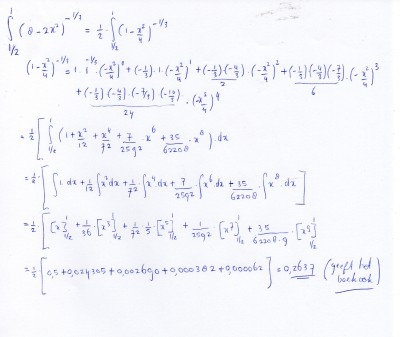 ∫_{1/2}^{1} (8-2x²)^{-1/3} = 1/2 · ∫_{1/2}^{1} (1-x²/4)^{-1/3}
(1-x²/4)^{-1/3} = 1·1^{-1/3}·(-x²/4)^0 + (-1/3)·1·(-x²/4)^1 + (-1/3)(-4/3)/2 · (-x²/4)² + (-1/3)(-4/3)(-7/3)/6 · (-x²/4)³
+ (-1/3)·(-4/3)·(-7/3)·(-10/3)/24 · (-x²/4)^4
= 1/2 [ ∫_{1/2}^{1} (1+x²/12 + x⁴/72 + 7/2592 · x⁶ + 35/62208 · x⁸) · dx
= 1/2 · [ ∫1·dx + 1/12 ∫x²dx + 1/72 · ∫x⁴dx + 7/2592 · ∫x⁶dx + 35/62208 · ∫x⁸·dx ]
= 1/2 [ [x]_{1/2}^{1} + 1/36 · [x³]_{1/2}^{1} + 1/72 · 1/5 · [x⁵]_{1/2}^{1} + 1/2592 · [x⁷]_{1/2}^{1} + 35/62208·9 · [x⁹]_{1/2}^{1}
= 1/2 · [ 0,5+0,024305+0,002690+0,000382+0,000062 ] = 0,2637 (geeft het
boek ook)